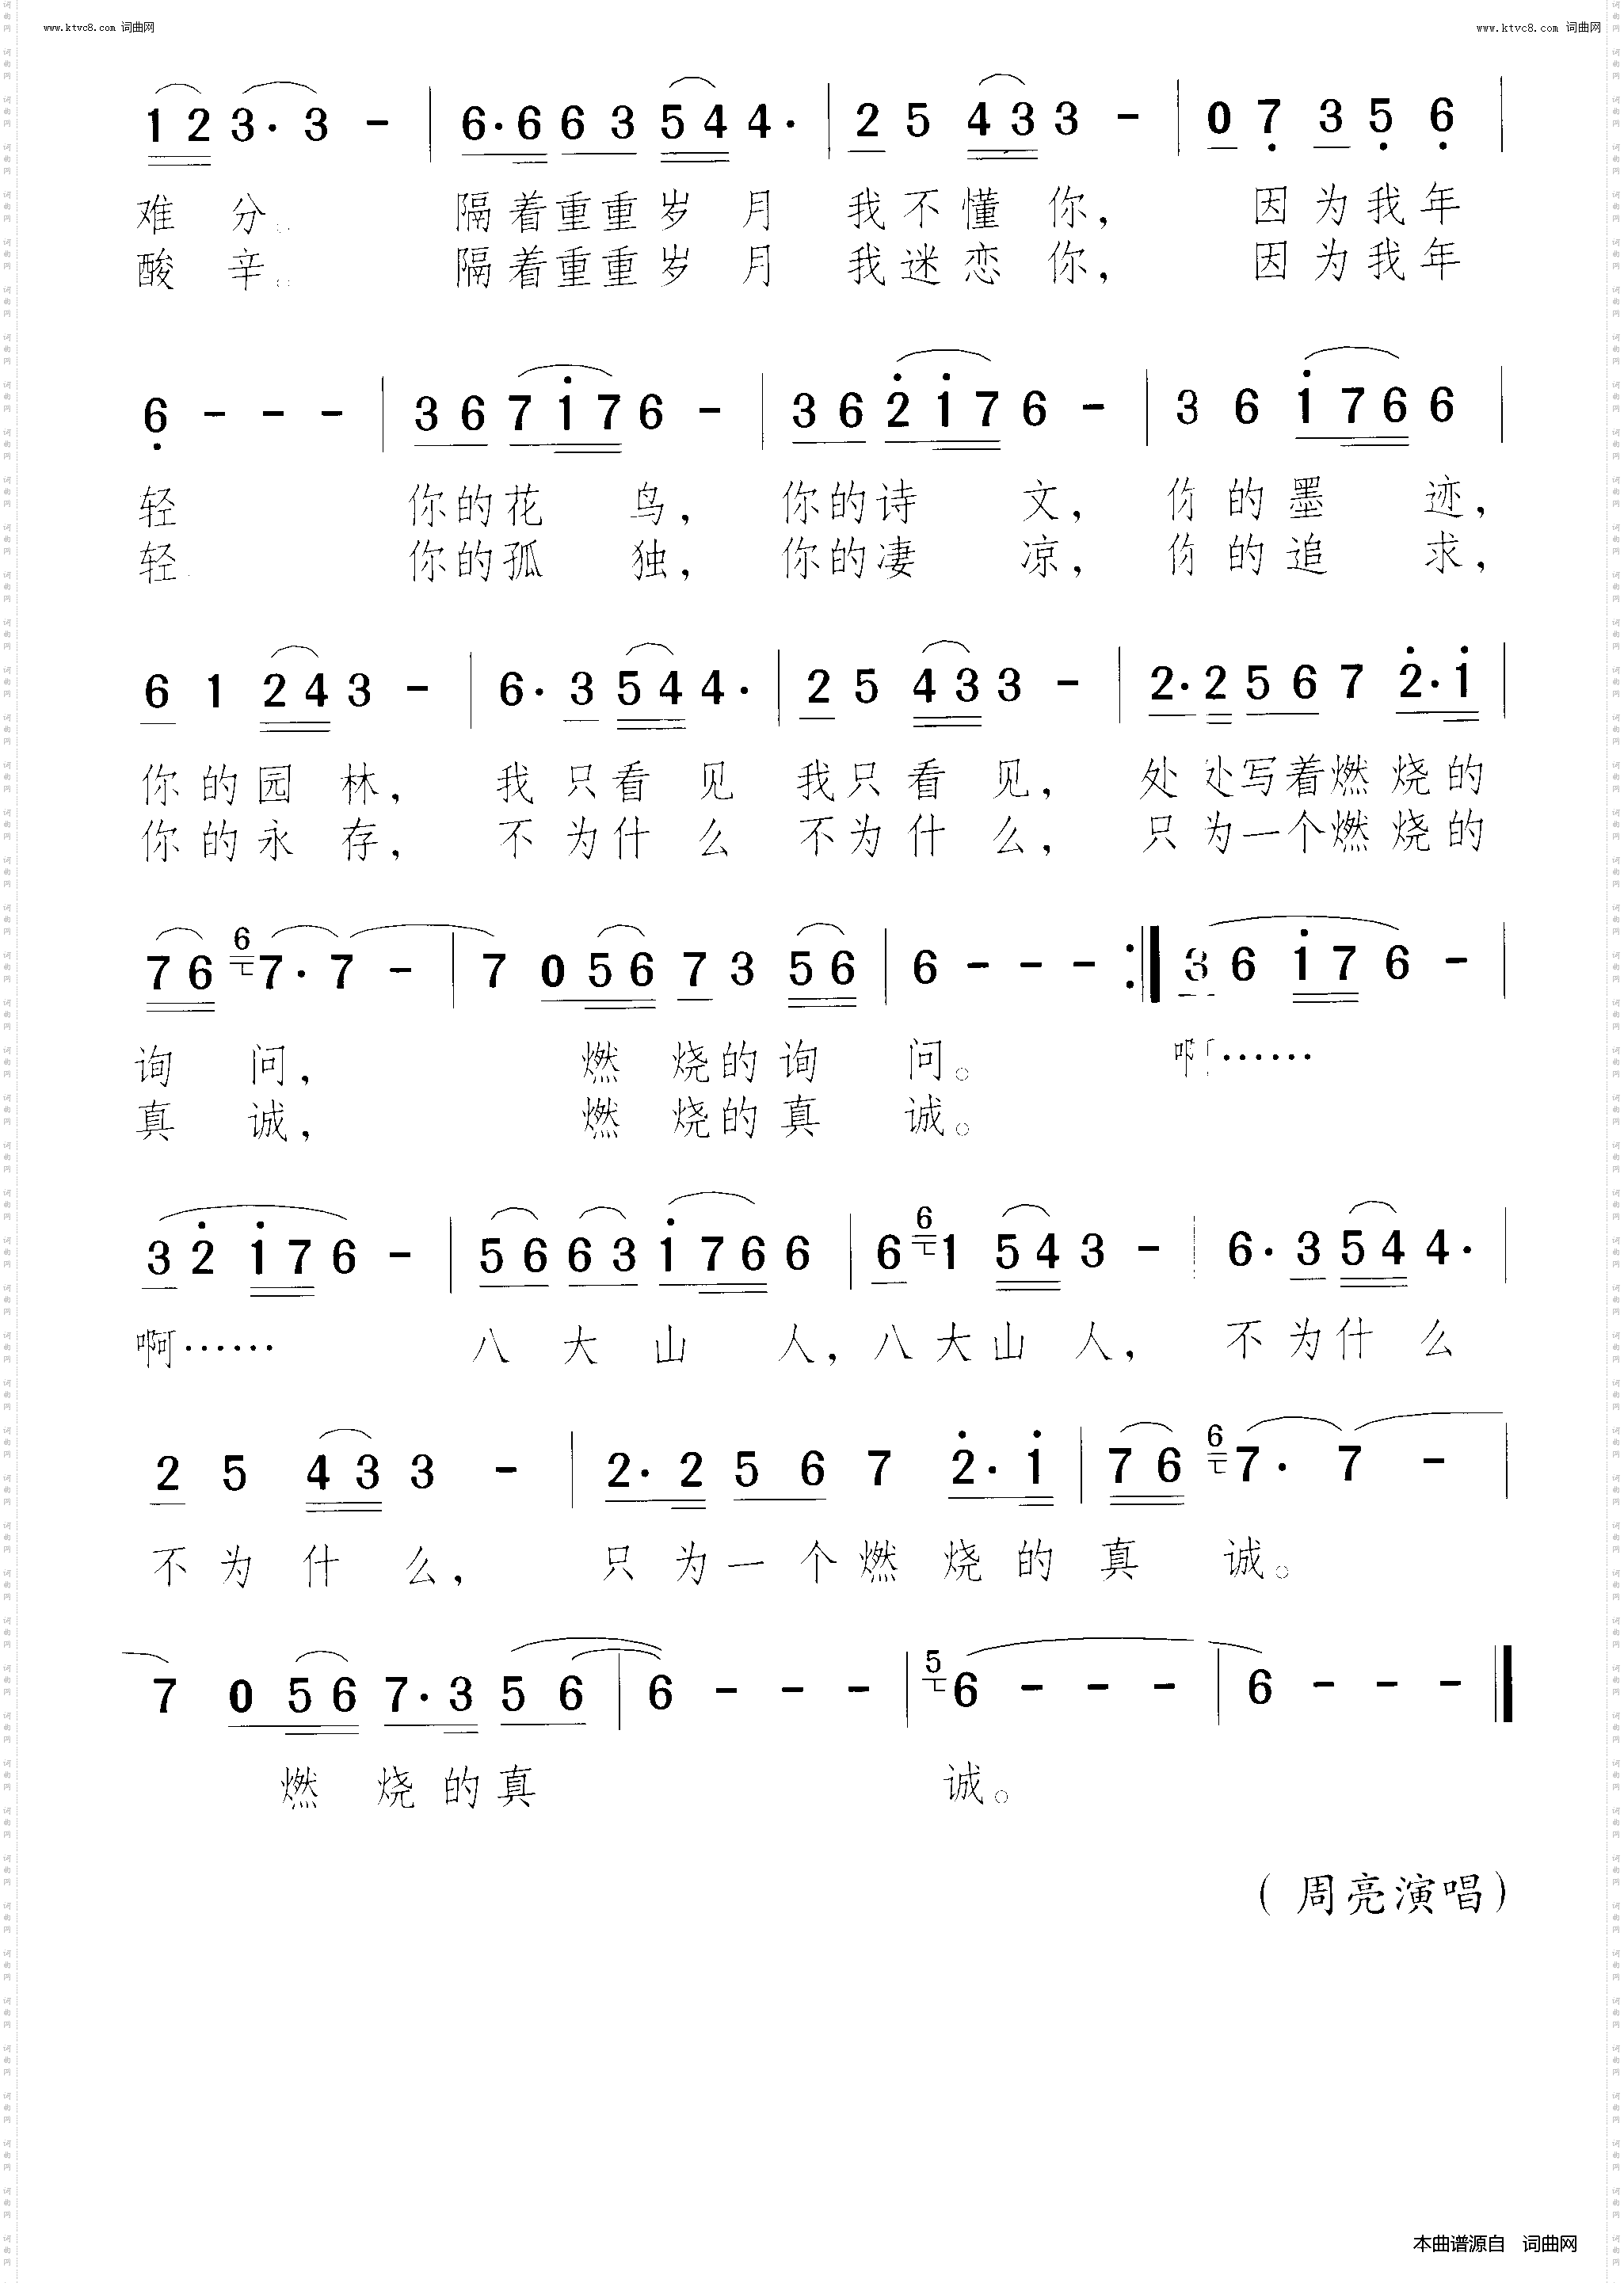 www.ktvc8.com 词曲网 www.ktvc8.com 词曲网
1 2 3· 3 - | 6·6 6 3 5 4 4· | 2 5 4 3 3 - | 0 7 3 5 6 |
难分。 隔着重重岁月 我不懂你， 因为我年
酸辛。 隔着重重岁月 我迷恋你， 因为我年
6 - - - | 3 6 7 1 7 6 - | 3 6 2 1 7 6 - | 3 6 1 7 6 6 |
轻 你的花鸟， 你的诗文， 你的墨迹，
轻 你的孤独， 你的凄凉， 你的追求，
6 1 2 4 3 - | 6· 3 5 4 4· | 2 5 4 3 3 - | 2·2 5 6 7 2·1 |
你的园林， 我只看见 我只看见， 处处写着燃烧的
你的永存， 不为什么 不为什么， 只为一个燃烧的
7 6 6 7· 7 - | 7 0 5 6 7 3 5 6 | 6 - - - :| 3 6 1 7 6 - |
询问， 燃烧的询问。 啊……
真诚， 燃烧的真诚。
3 2 1 7 6 - | 5 6 6 3 1 7 6 6 | 6 6 1 5 4 3 - | 6· 3 5 4 4· |
啊…… 八大山人，八大山人， 不为什么
2 5 4 3 3 - | 2· 2 5 6 7 2· 1 | 7 6 6 7· 7 - |
不为什么， 只为一个燃烧的真诚。
7 0 5 6 7·3 5 6 | 6 - - - | 5 6 - - - | 6 - - - ‖
燃烧的真诚。
（周亮演唱）
本曲谱源自 词曲网